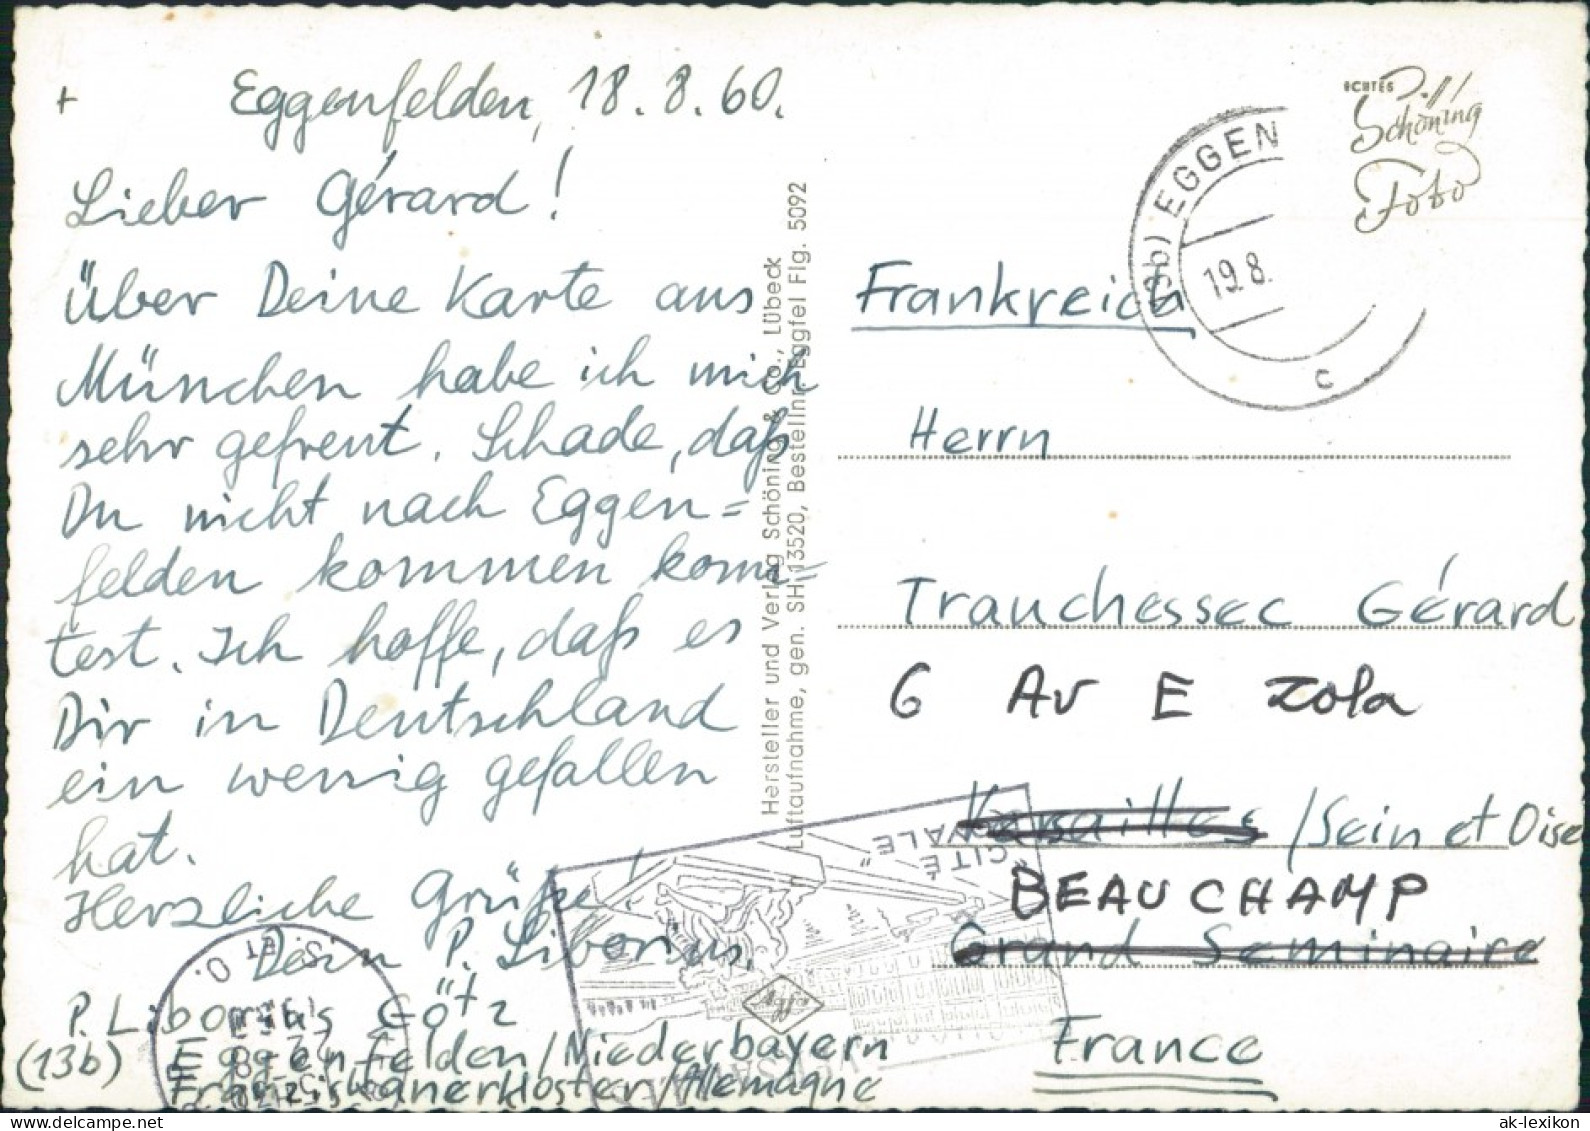 + Eggenfelden, 18. 8. 60.
Lieber Gérard!
Über Deine Karte aus
München habe ich mich
sehr gefreut. Schade, daß
Du nicht nach Eggen=
felden kommen konn=
test. Ich hoffe, daß es
Dir in Deutschland
ein wenig gefallen
hat.
Herzliche Grüße!
Dein P. Liborius.
P. Liborius Götz
(13b) Eggenfelden/Niederbayern
Franziskanerkloster/Allemagne
Hersteller und Verlag Schöning & Co., Lübeck
Luftaufnahme, gen. SH 13520, Bestellnr. Eggfel Flg. 5092
ECHTES
Schöning
Foto
3b) EGGEN
19.8.
c
Frankreich
Herrn
Trauchessec Gérard
6 Av E Zola
Versailles /Sein et Oise
BEAUCHAMP
Grand Seminaire
France
CITÉ
Agfa
ak-lexikon